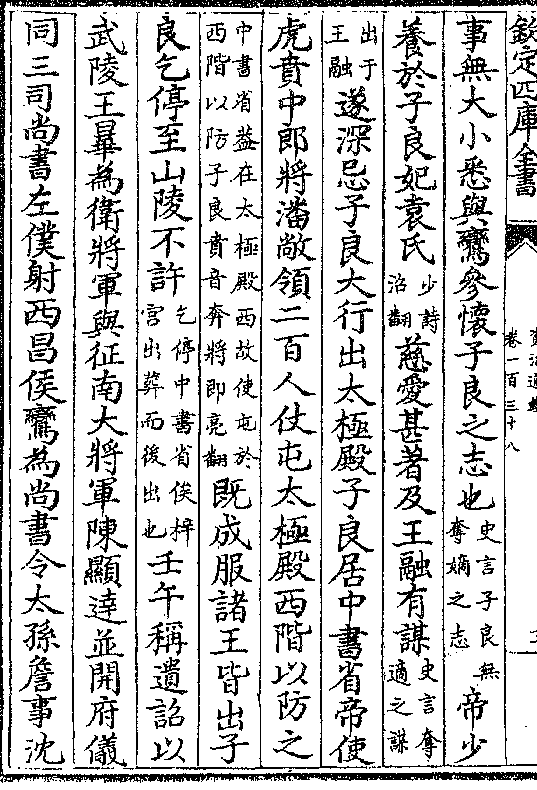 欽定四庫全書
資治通鑑
卷一百三十八
事無大小悉與鸞參懷子良之志也史言子良無奪嫡之志帝少
養於子良妃袁氏少詩沼翻慈愛甚著及王融有謀史言奪適之謀
出于王融遂深忌子良大行出太極殿子良居中書省帝使
虎賁中郎將潘敞領二百人仗屯太極殿西階以防之
中書省蓋在太極殿西故使屯於西階以防子良賁音奔將即亮翻既成服諸王皆出子
良乞停至山陵不許乞停中書省俟梓宮出葬而後出也壬午稱遺詔以
武陵王曅為衛將軍與征南大將軍陳顯達並開府儀
同三司尚書左僕射西昌侯鸞為尚書令太孫詹事沈